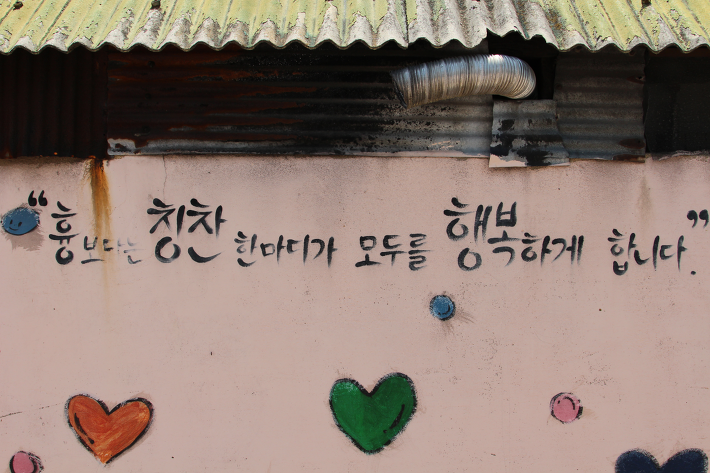 “흉보다는 칭찬 한마디가 모두를 행복하게 합니다.”